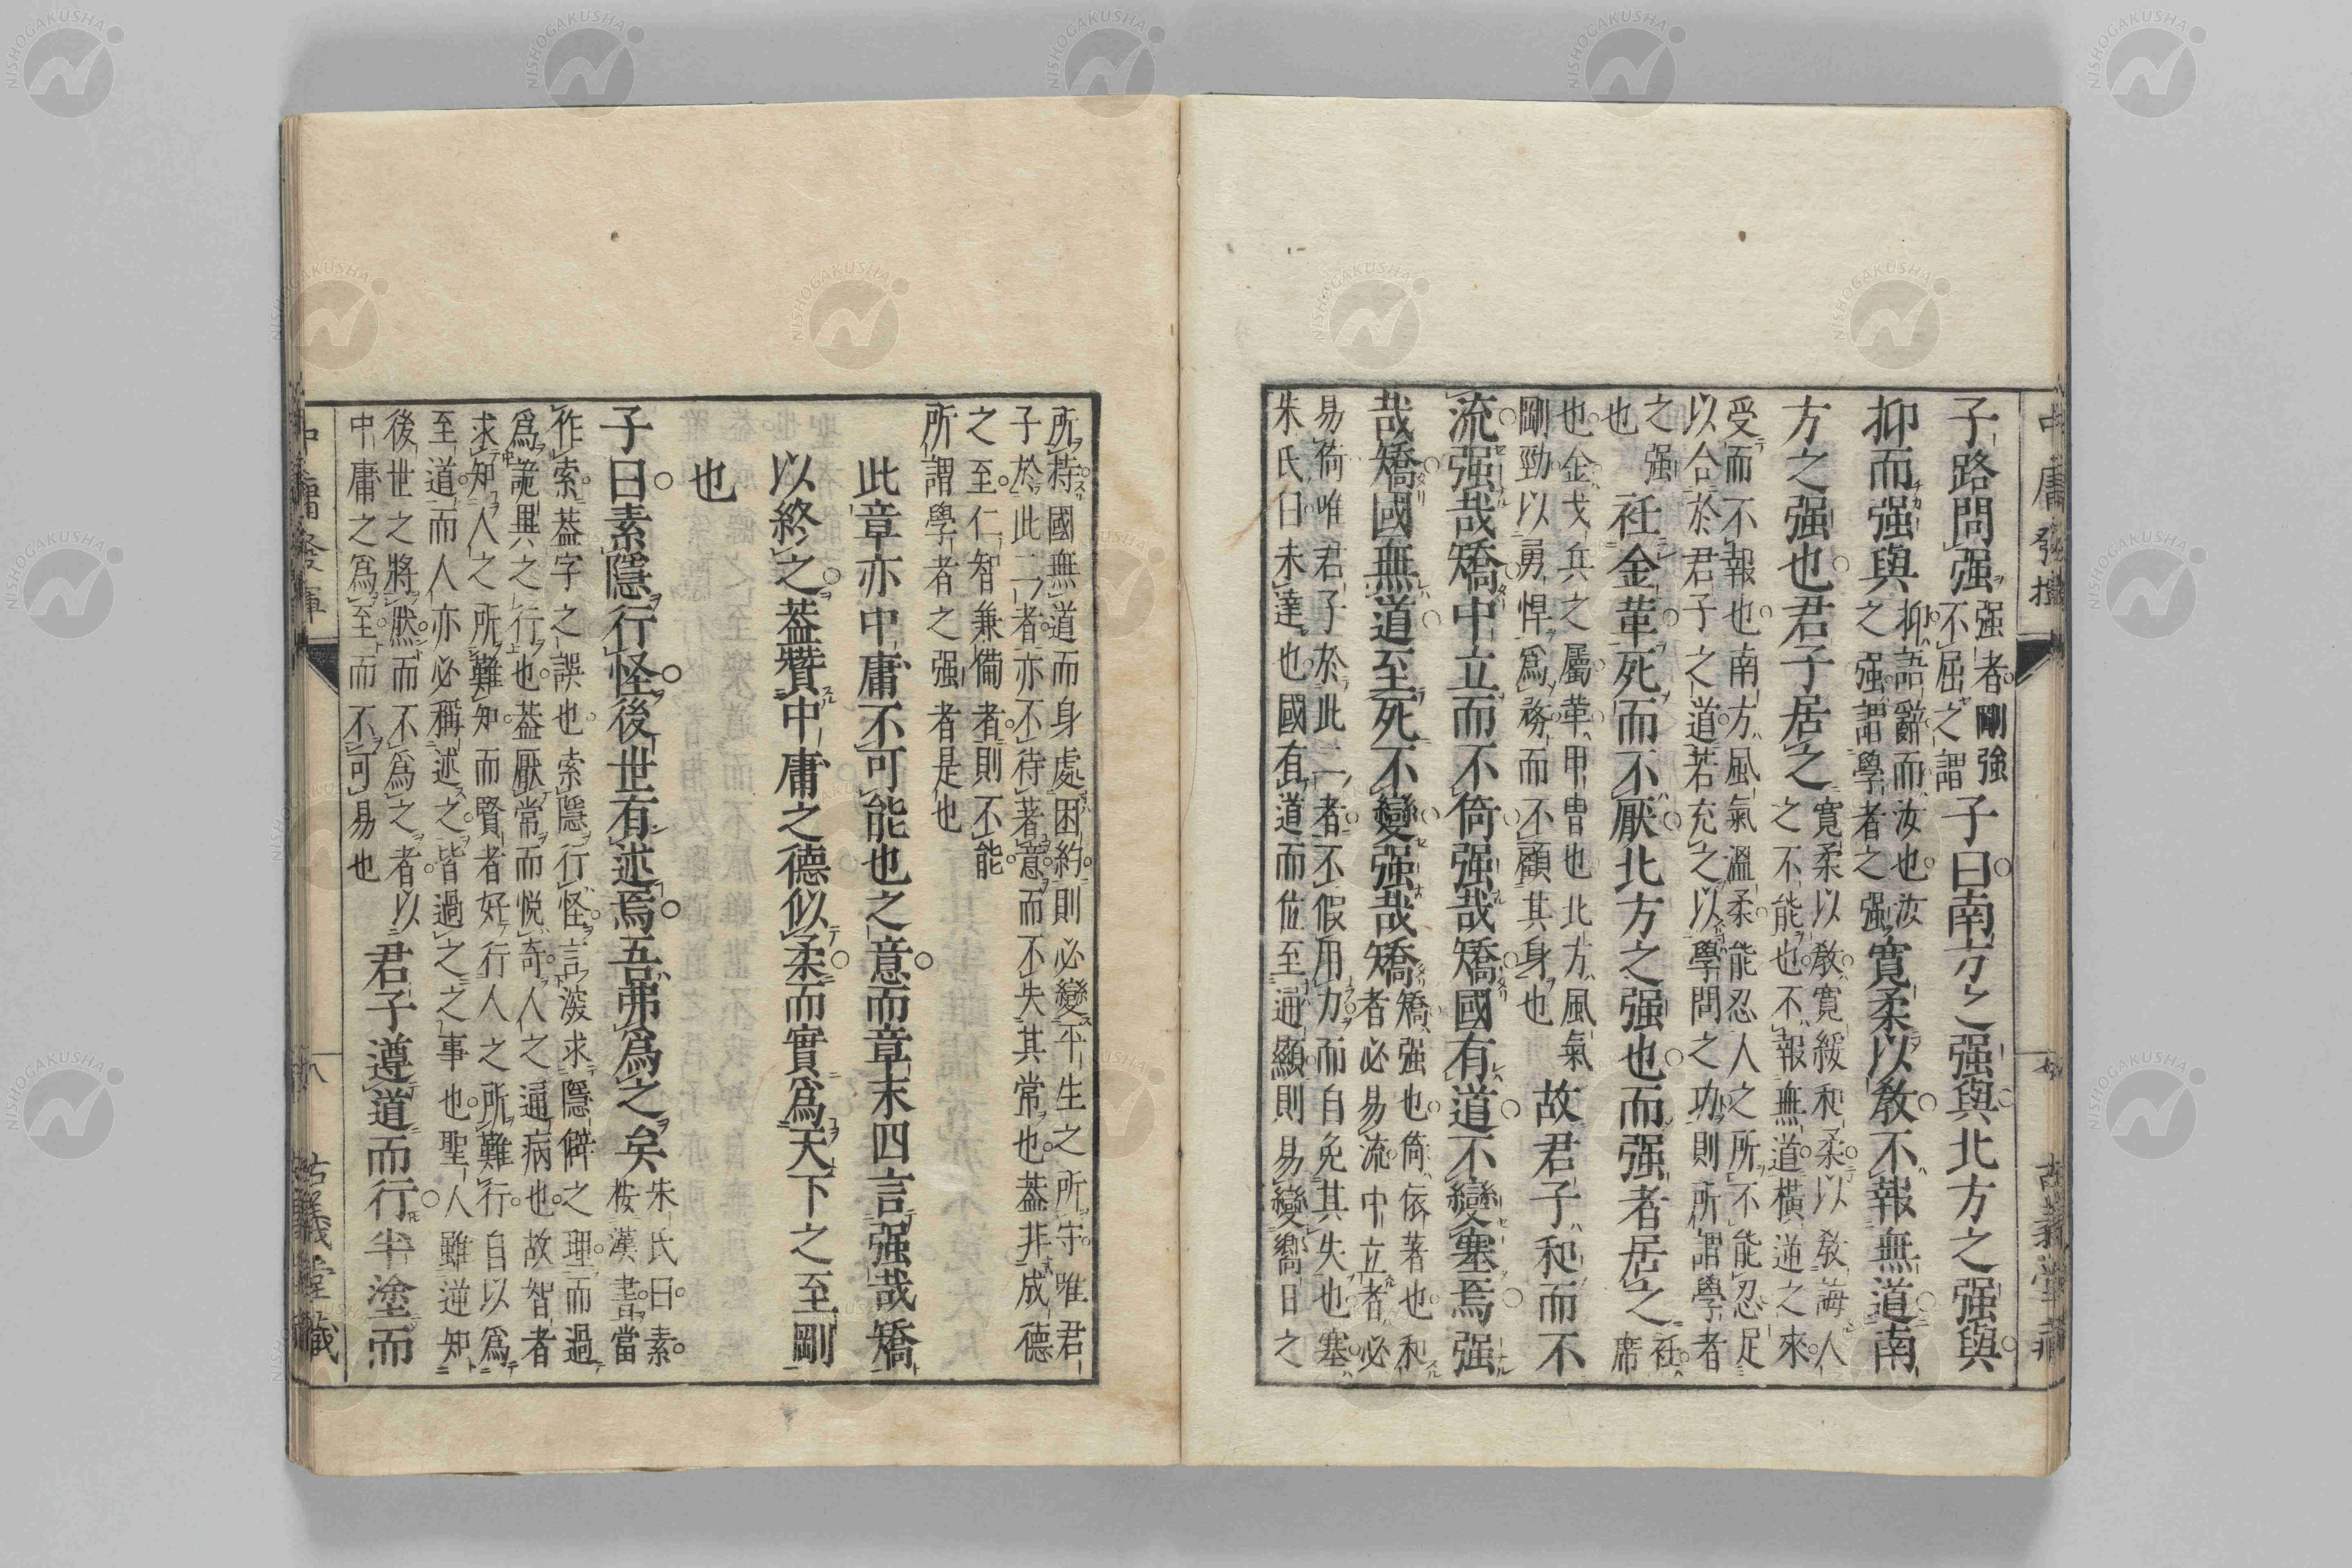 中庸發揮
古義堂藏
子路問强强者剛強不屈之謂子曰南方之强與北方之强與
抑而强與抑語辭而汝也汝之强謂學者之强寬柔以敎不報無道南
方之强也君子居之寛柔以敎寛緩和柔以敎誨人之不能也不報無道橫逆之來
受而不報也南方風氣溫柔能忍人之所不能忍足
以合於君子之道若充之以學問之功則所謂學者
之强也衽金革死而不厭北方之强也而强者居之衽席
也金戈兵之屬革甲冑也北方風氣
剛勁以勇悍爲務而不顧其身也故君子和而不
流强哉矯中立而不倚强哉矯國有道不變塞焉强
哉矯國無道至死不變强哉矯矯强也倚依著也和者必易流中立者必
易倚唯君子於此二者不假用力而自免其失也塞
朱氏曰未達也國有道而位至通顯則易變嚮日之
所持國無道而身處困約則必變平生之所守唯君
子於此二者亦不待著意而不失其常也蓋非成德
之至仁智兼備者則不能
所謂學者之强者是也
此章亦中庸不可能也之意而章末四言强哉矯
以終之蓋贊中庸之德似柔而實爲天下之至剛
也
子曰素隱行怪後世有述焉吾弗爲之矣朱氏曰素按漢書當
作索蓋字之誤也索隱行怪言深求隱僻之理而過
爲詭異之行也蓋厭常而悅奇人之通病也故智者
求知人之所難知而賢者好行人之所難行自以爲
至道而人亦必稱述之皆過之之事也聖人雖逆知
後世之將然而不爲之者以
中庸之爲至而不可易也君子遵道而行半塗而
中庸發揮
八
古義堂藏